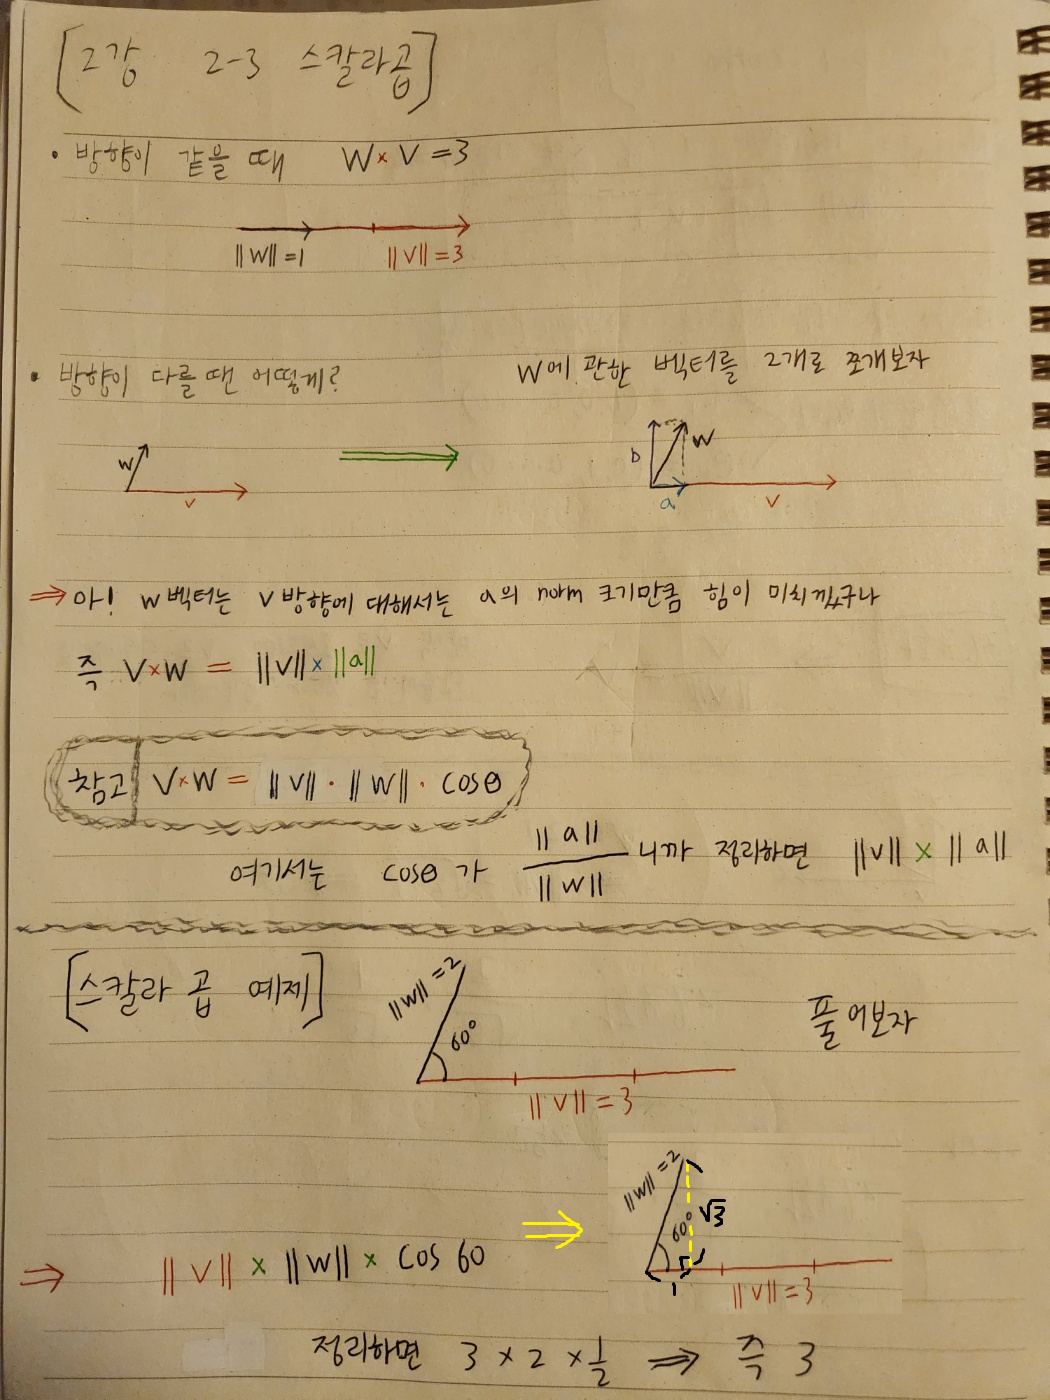 [2강 2-3 스칼라곱]
• 방향이 같을 때 W × V = 3
||W|| = 1 ||V|| = 3
• 방향이 다를 땐 어떻게? W에 관한 벡터를 2개로 쪼개보자
W V
b W a V
⇒ 아! W 벡터는 V 방향에 대해서는 a의 norm 크기만큼 힘이 미치겠구나
즉 V × W = ||V|| × ||a||
참고 V × W = ||V|| · ||W|| · cosθ
여기서는 cosθ가 ||a|| / ||W|| 니까 정리하면 ||V|| × ||a||
[스칼라 곱 예제] ||W|| = 2 풀어보자
60°
||V|| = 3
||W|| = 2
60° √3
1 ||V|| = 3
⇒ ||V|| × ||W|| × cos 60 ⇒
정리하면 3 × 2 × 1/2 ⇒ 즉 3